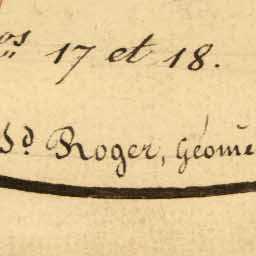 os 17 et 18.
Sd Roger, Géomè